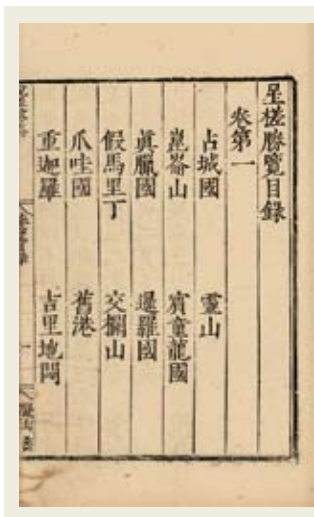 星槎勝覽目錄
卷第一
占城國 靈山
崑崙山 賓童龍國
真臘國 暹羅國
假馬里丁 交欄山
爪哇國 舊港
重迦羅 吉里地悶